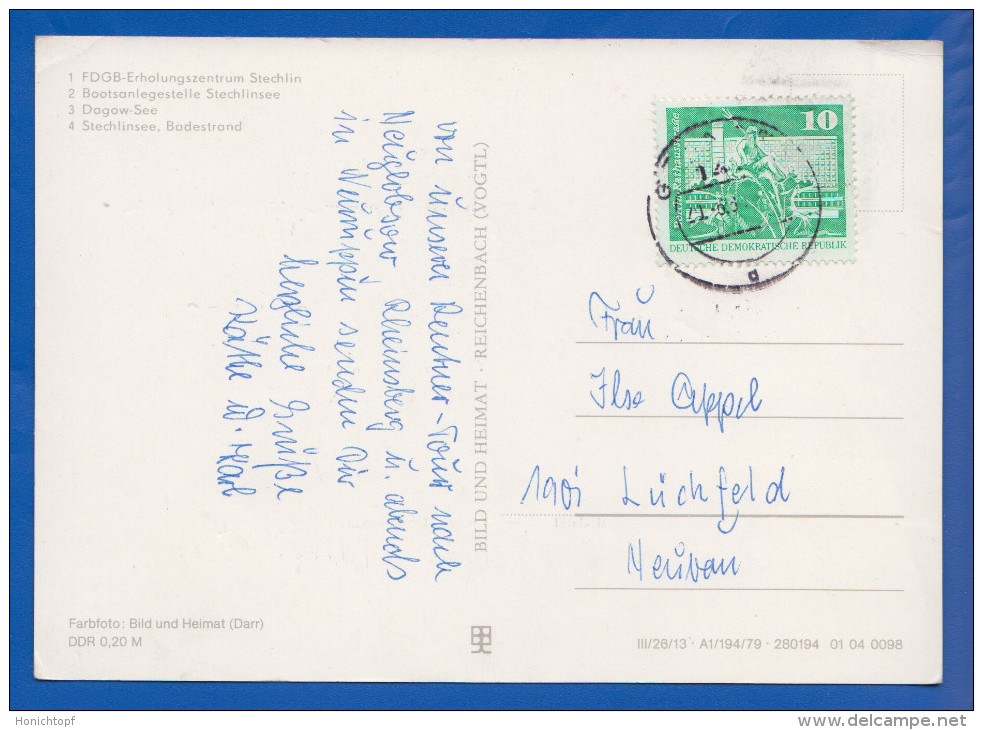 1 FDGB-Erholungszentrum Stechlin
2 Bootsanlegestelle Stechlinsee
3 Dagow-See
4 Stechlinsee, Badestrand
von unserer Rentner-Tour nach
Neuglobsow, Rheinsberg u. abends
in Neuruppin senden Dir
herzliche Grüße
Käthe u. Karl
BILD UND HEIMAT · REICHENBACH (VOGTL)
10
Berlin, Rathausstraße
DEUTSCHE DEMOKRATISCHE REPUBLIK
14
Frau
Ilse Appel
1901 Lüchfeld
Neubau
Farbfoto: Bild und Heimat (Darr)
DDR 0,20 M
III/26/13 · A1/194/79 · 280194 01 04 0098
Honichtopf
www.delcampe.net